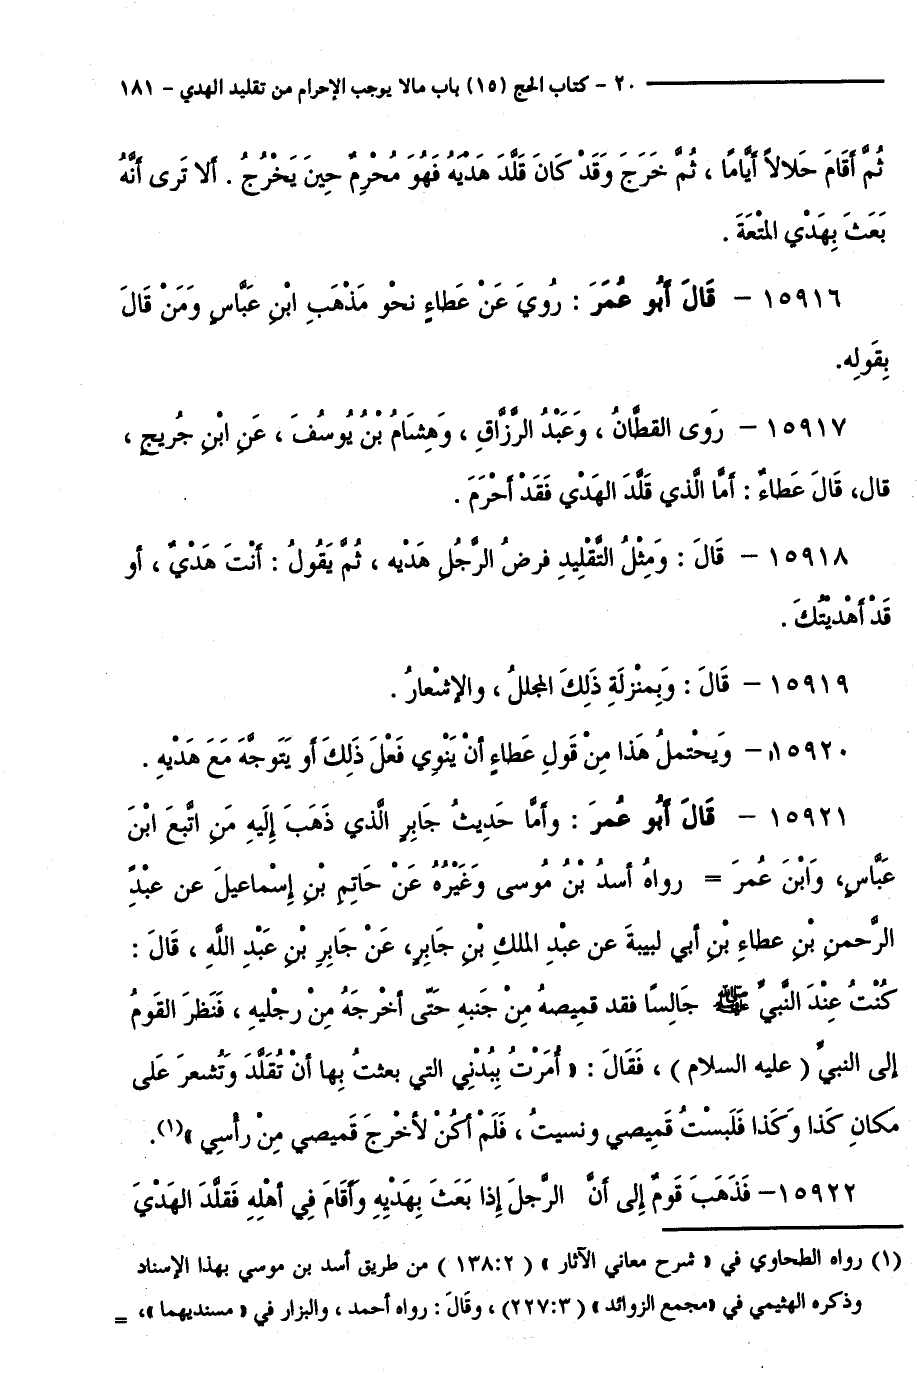 ٢٠ - كتاب الحج (١٥) باب مالا يوجب الإحرام من تقليد الهدي - ١٨١
ثُمَّ أَقَامَ حَلالاً أَيَّامًا ، ثُمَّ خَرَجَ وَقَدْ كَانَ قَلَّدَ هَدْيَهُ فَهُوَ مُحْرِمٌ حِينَ يَخْرُجُ . أَلا تَرى أَنَّهُ
بَعَثَ بِهَدْيِ المتْعَةَ .
١٥٩١٦ - قَالَ أَبُو عُمَرَ : رُوِيَ عَنْ عَطَاءٍ نحْو مَذْهَبِ ابْنِ عَبَّاسٍ وَمَنْ قَالَ
بِقَولِه.
١٥٩١٧ - رَوى القطَّانُ ، وَعَبْدُ الرَّزَّاقِ ، وَهِشَامُ بْنُ يُوسُفَ ، عَنِ ابْنِ جُرِيجٍ ،
قال، قَالَ عَطاءٌ : أَمَّا الَّذي قَلَّدَ الهَدْي فَقَدْ أَحْرَمَ .
١٥٩١٨ - قَالَ : وَمِثْلُ التَّقْلِيدِ فرضُ الرَّجُلِ هَدْيه ، ثُمَّ يَقُولُ : أَنْتَ هَدْيٌ ، أو
قَدْ أَهْدَيْتُكَ .
١٥٩١٩ - قَالَ : وَبِمنْزِلَةِ ذَلِكَ المجللُ ، والإشْعارُ .
١٥٩٢٠ - وَيحْتملُ هَذَا مِنْ قَولِ عَطاءٍ أَنْ يَنْوِي فَعْلَ ذَلِكَ أو يَتَوجَّهَ مَعَ هَدْيهِ .
١٥٩٢١ - قَالَ أَبُو عُمرَ : وأمَّا حَدِيثُ جَابِرٍ الَّذي ذَهَبَ إِلَيهِ مَنِ اتَّبعَ ابْنَ
عَبَّاسٍ، وَابْنَ عُمرَ = رواهُ أسدُ بْنُ مُوسى وَغَيْرُهُ عَنْ حَاتِمِ بْنِ إِسْماعيلَ عن عبْدِ
الرَّحمنِ بْنِ عطاءِ بْنِ أبي لبيبةَ عن عبْدِ الملكِ بْنِ جَابِرٍ، عَنْ جَابِرِ بْنِ عَبْدِ اللَّهِ ، قَالَ :
كُنْتُ عِنْدَ النَّبيِّ ﷺ جَالِسًا فقد قمِيصهُ مِنْ جَنبهِ حَتَّى أخْرجَهُ مِنْ رجْليهِ ، فَنَظرَ القَومُ
إلى النبيِّ ( عليه السلام ) ، فَقَالَ : « أُمَرْتُ بِبُدْنِي التي بعثتُ بِها أنْ تُقَلَّدَ وَتُشعرَ عَلَى
مكانِ كَذَا وَكَذَا فَلَبسْتُ قَمِيصِي ونسيتُ ، فَلَمْ أَكُنْ لأخْرجَ قَميصي مِنْ رأْسِي »(١).
١٥٩٢٢- فَذَهَبَ قَومٌ إِلى أنَّ الرَّجلَ إذا بَعَثَ بِهَدْيِهِ وأقَامَ فِي أهْلِهِ فَقَلَّدَ الهَدْيَ
(١) رواه الطحاوي في « شرح معاني الآثار » ( ١٣٨:٢ ) من طريق أسد بن موسي بهذا الإسناد
وذكره الهثيمي في «مجمع الزوائد» ( ٢٢٧:٣) ، وقَالَ : رواه أحمد ، والبزار في « مسنديهما »، =